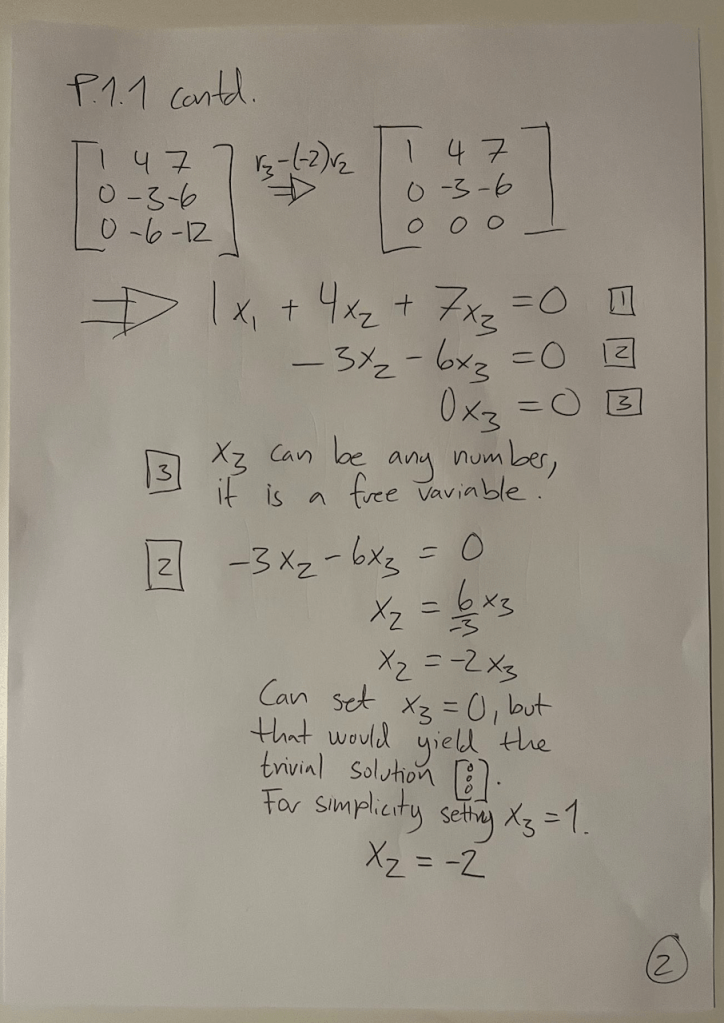 P.1.1 contd.
[1 4 7; 0 -3 -6; 0 -6 -12] r₃-(-2)r₂ ⇒ [1 4 7; 0 -3 -6; 0 0 0]
⇒ 1x₁ + 4x₂ + 7x₃ = 0 [1]
-3x₂ - 6x₃ = 0 [2]
0x₃ = 0 [3]
[3] x₃ can be any number,
it is a free variable.
[2] -3x₂ - 6x₃ = 0
x₂ = 6/-3 x₃
x₂ = -2x₃
Can set x₃ = 0, but
that would yield the
trivial solution [0 0 0].
For simplicity setting x₃ = 1.
x₂ = -2
2